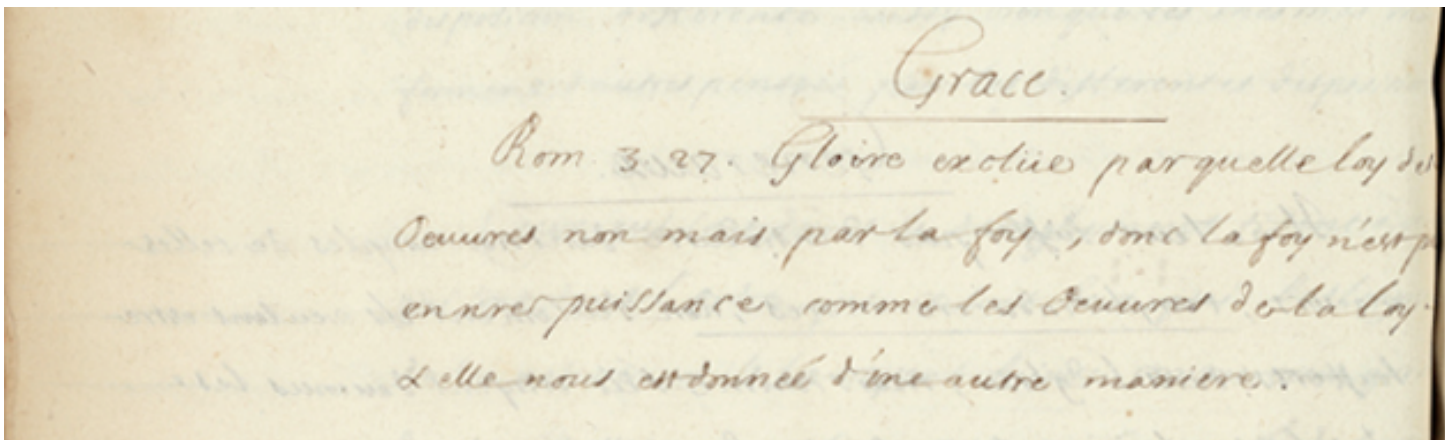 Grace.
Rom 3. 27. Gloire exclüe par quelle loy des
Oeuures non mais par la foy, donc la foy n'est
en nre puissance comme les Oeuures de la loy.
& elle nous est donneé d'une autre maniere.